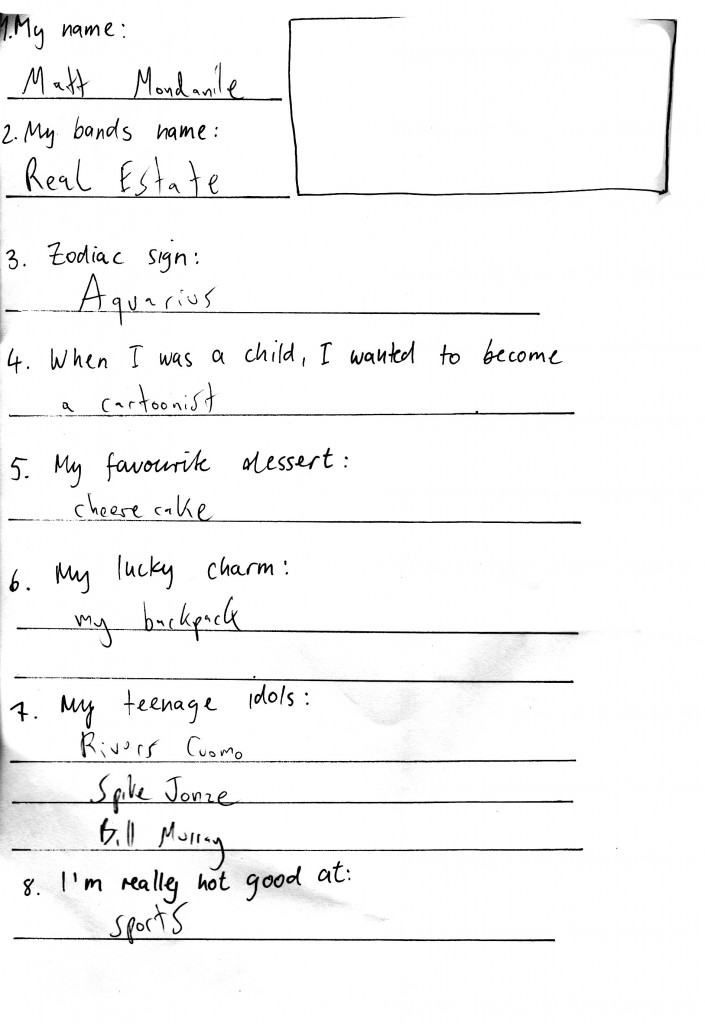 1. My name:
Matt Mondanile
2. My bands name:
Real Estate
3. Zodiac sign:
Aquarius
4. When I was a child, I wanted to become
a cartoonist
5. My favourite dessert:
cheese cake
6. My lucky charm:
my backpack
7. My teenage idols:
Rivers Cuomo
Spike Jonze
Bill Murray
8. I'm really not good at:
sports